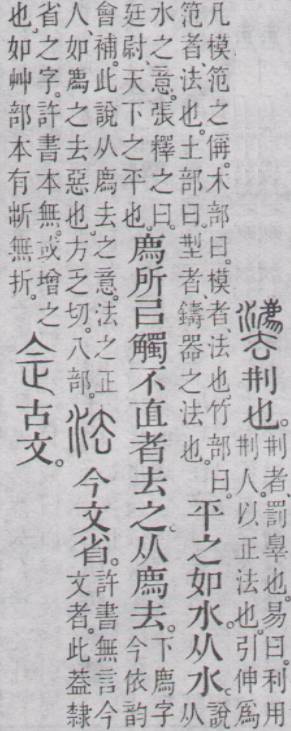 灋㓝也。
㓝者、罰辠也。易曰。利用
㓝人。以正法也。引伸爲
凡模笵之偁。木部曰。模者、法也。竹部曰。
笵者、法也。土部曰。型者、鑄器之法也。
平之如水。从水。
說
从
水之意。張釋之曰。
廷尉、天下之平也。
廌所㠯觸不直者去之。从廌去。
下廌字
今依韵
會補。此說从廌去之意。法之正
人、如廌之去惡也。方乏切。八部。
法今文省。
許書無言今
文者。此葢隸
省之字。許書本無。或增之
也。如艸部本有斳無折。
佱古文。